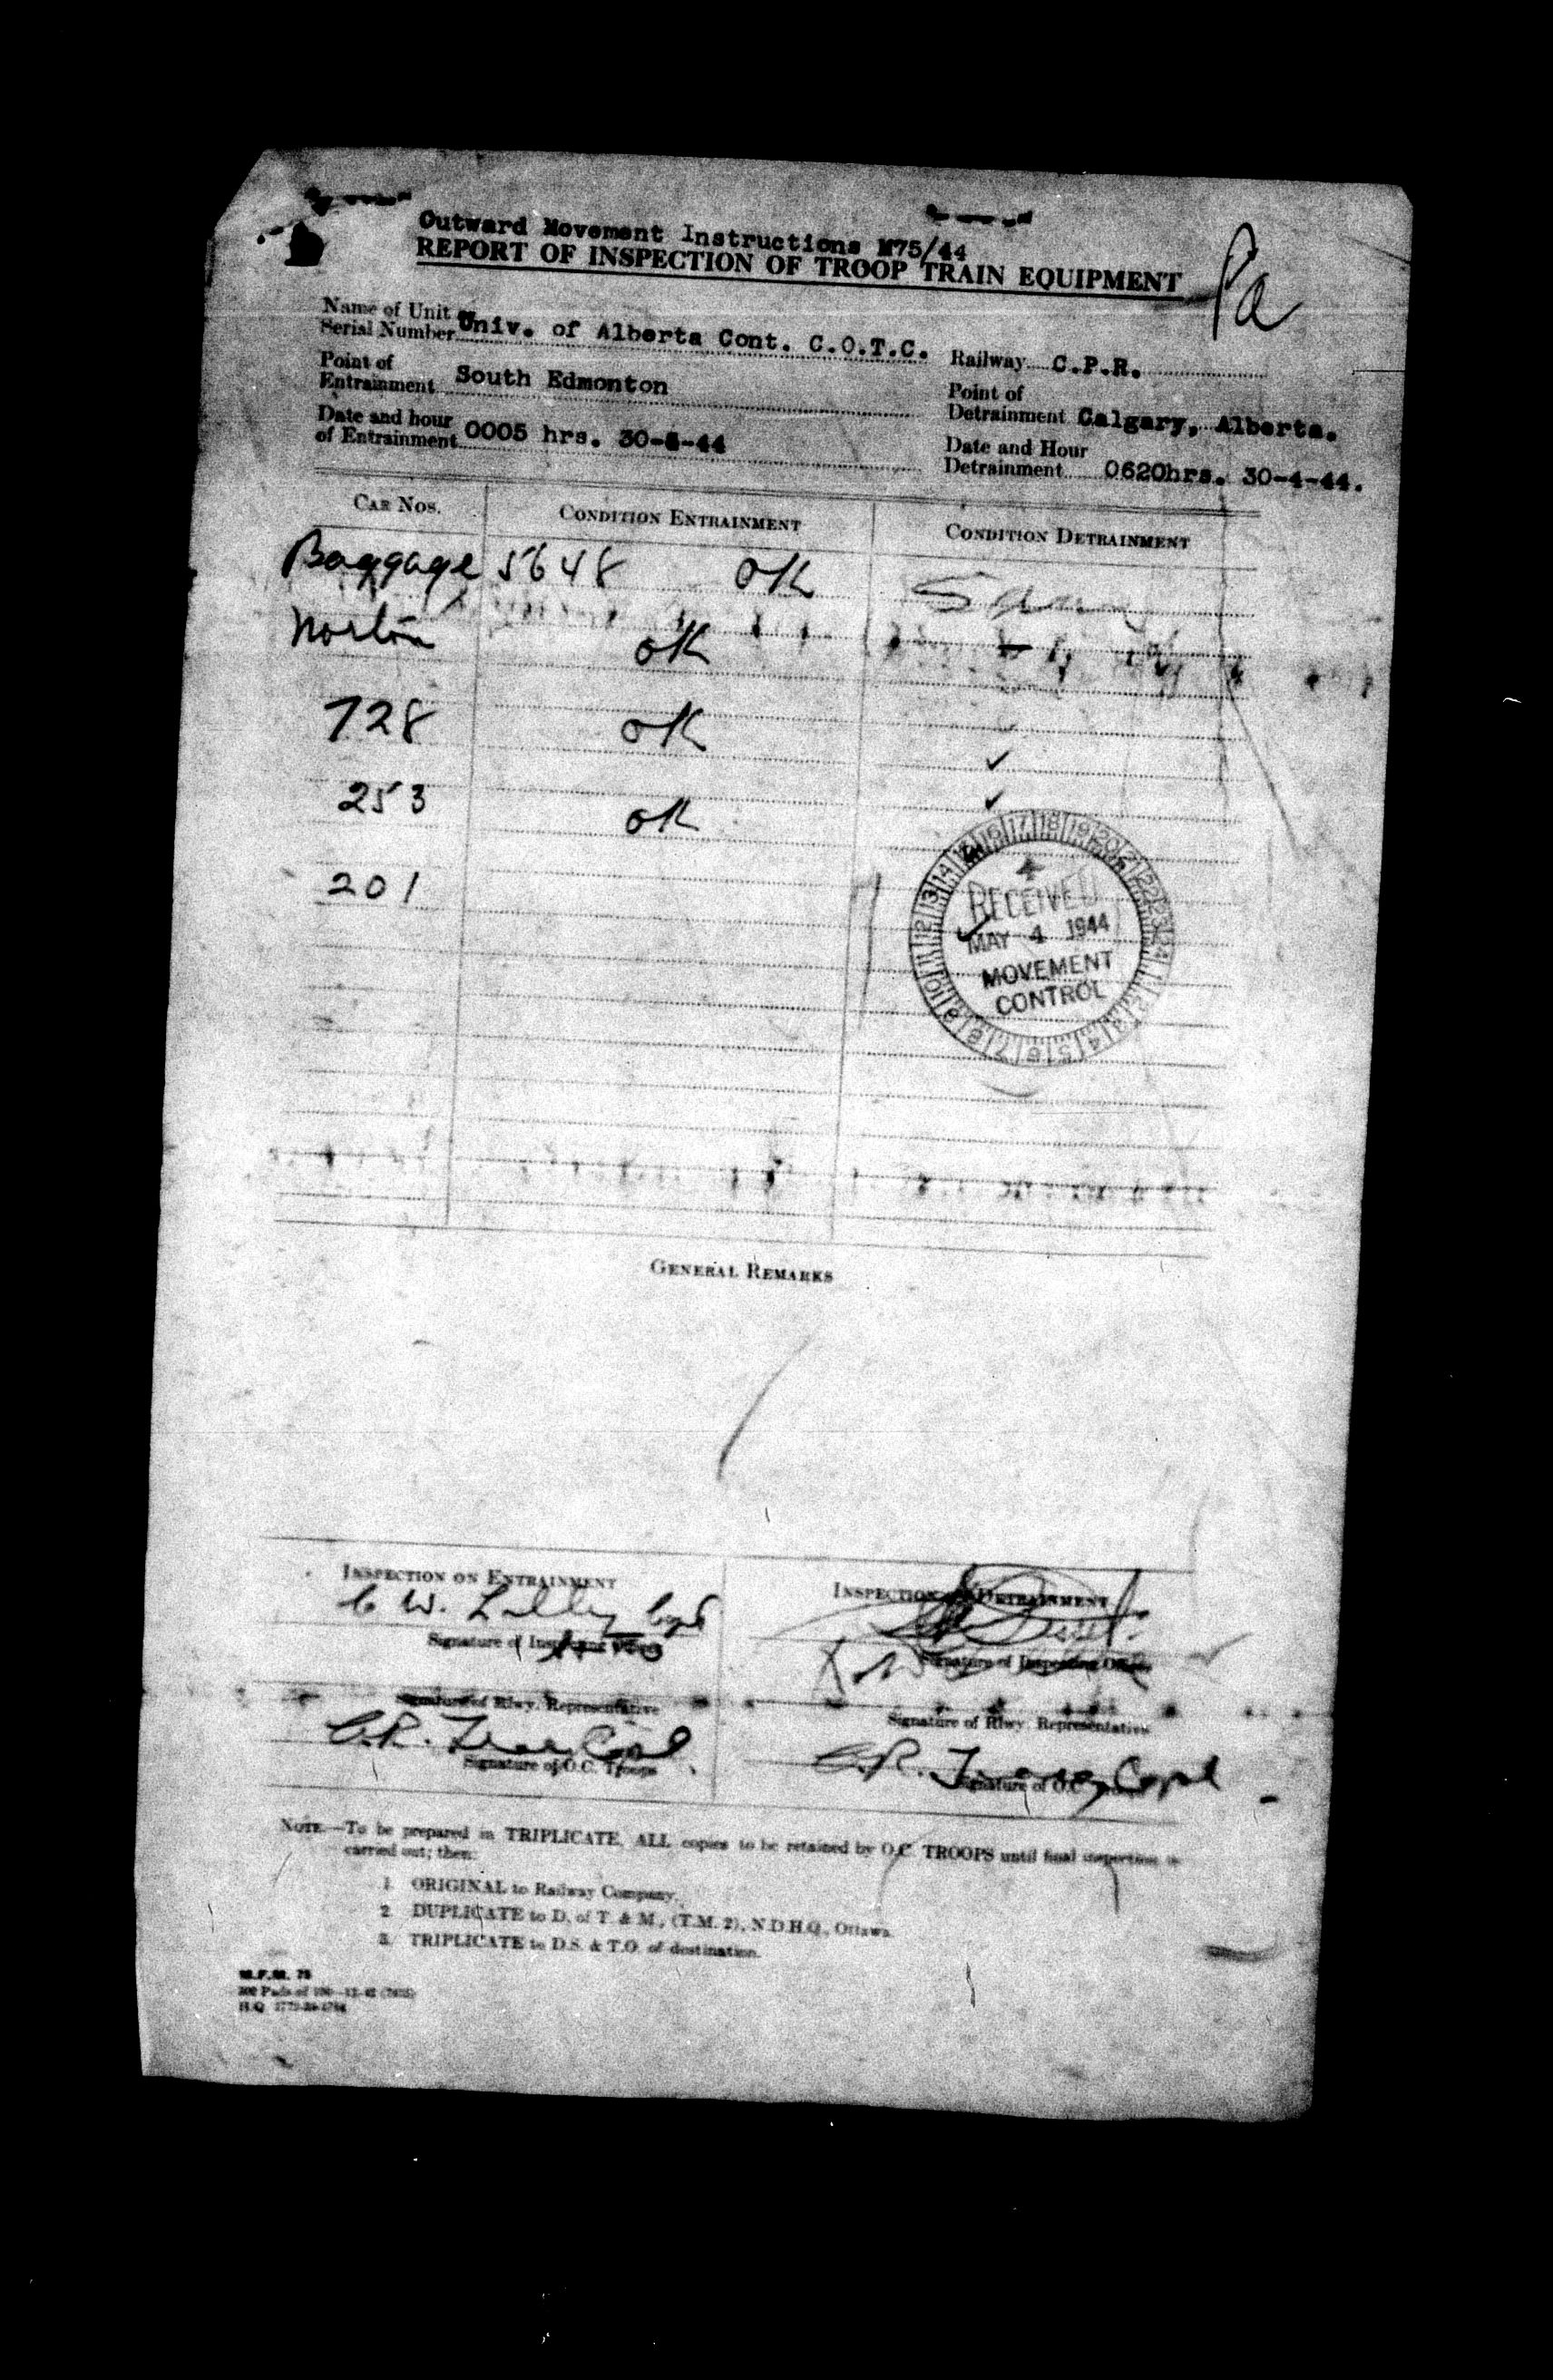 Outward Movement Instructions M75/44
REPORT OF INSPECTION OF TROOP TRAIN EQUIPMENT
Pa
Name of Unit
Serial Number Univ. of Alberta Cont. C.O.T.C. Railway C.P.R.
Point of
Entrainment South Edmonton
Point of
Detrainment Calgary, Alberta.
Date and hour
of Entrainment 0005 hrs. 30-4-44
Date and Hour
Detrainment 0620hrs. 30-4-44.
CAR NOS. CONDITION ENTRAINMENT CONDITION DETRAINMENT
Baggage 5648 OK
Norton OK
728 OK ✓
253 OK ✓
201
RECEIVED
MAY 4 1944
MOVEMENT
CONTROL
GENERAL REMARKS
INSPECTION ON ENTRAINMENT INSPECTION ON DETRAINMENT
C W. Lilley
Signature of Inspecting Officer Signature of Inspecting Officer
Signature of Rlwy. Representative Signature of Rlwy. Representative
C.R. C.R.
Signature of O.C. Troops Signature of O.C.
NOTE.—To be prepared in TRIPLICATE, ALL copies to be retained by O.C. TROOPS until final inspection is
carried out; then:
1. ORIGINAL to Railway Company.
2. DUPLICATE to D. of T. & M., (T.M. 2), N.D.H.Q., Ottawa.
3. TRIPLICATE to D.S. & T.O. of destination.
M.F.M. 75
H.Q.